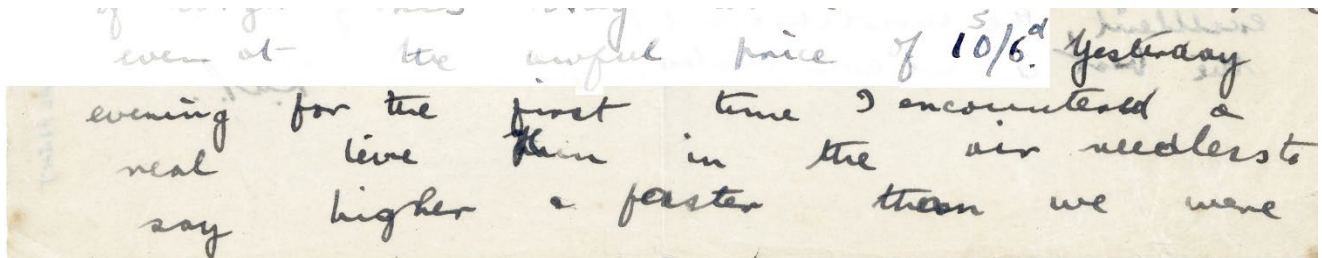 even at the awful price of 10/6d. Yesterday
evening for the first time I encountered a
real live Hun in the air needless to
say higher & faster than we were